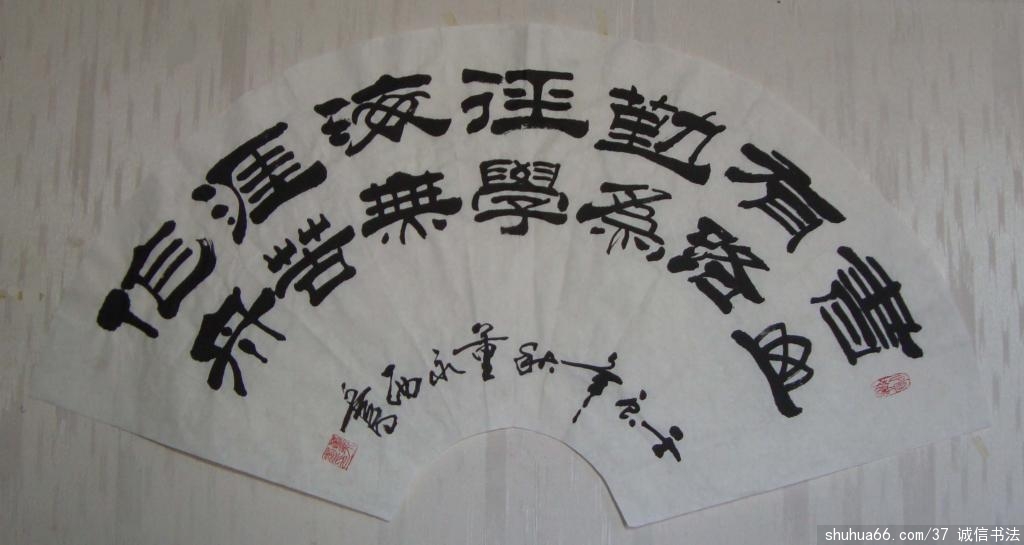 書山
有路
勤為
徑學
海無
涯苦
作舟
年秋董永西
shuhua66.com/37 诚信书法